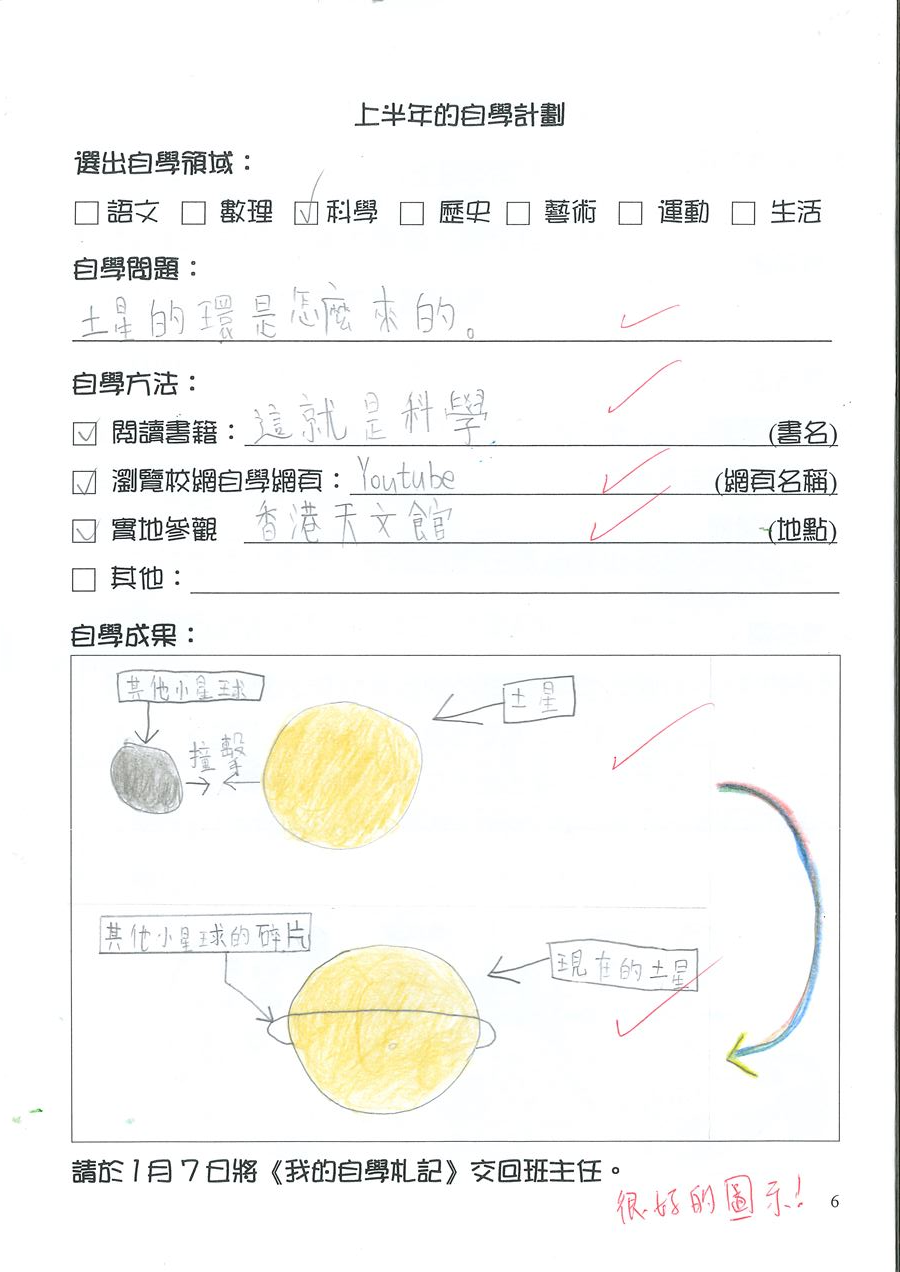 上半年的自學計劃
選出自學領域：
□語文 □ 數理 ☑科學 □ 歷史 □ 藝術 □ 運動 □ 生活
自學問題：
土星的環是怎麼來的。
自學方法：
☑ 閱讀書籍：這就是科學 (書名)
☑ 瀏覽校網自學網頁：Youtube (網頁名稱)
☑ 實地參觀 香港天文館 (地點)
□ 其他：
自學成果：
其他小星球
土星
撞擊
其他小星球的碎片
現在的土星
請於1月7日將《我的自學札記》交回班主任。
很好的圖示！
6